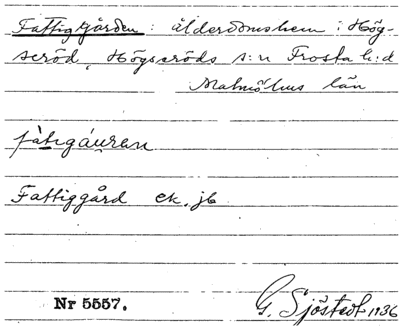 Fattiggården : ålderdomshem i Hög-
seröd, Högseröds s:n Frosta h:d
Malmöhus län
fàtigáuṛan
Fattiggård ek. jb
Nr 5557. G. Sjöstedt 1936